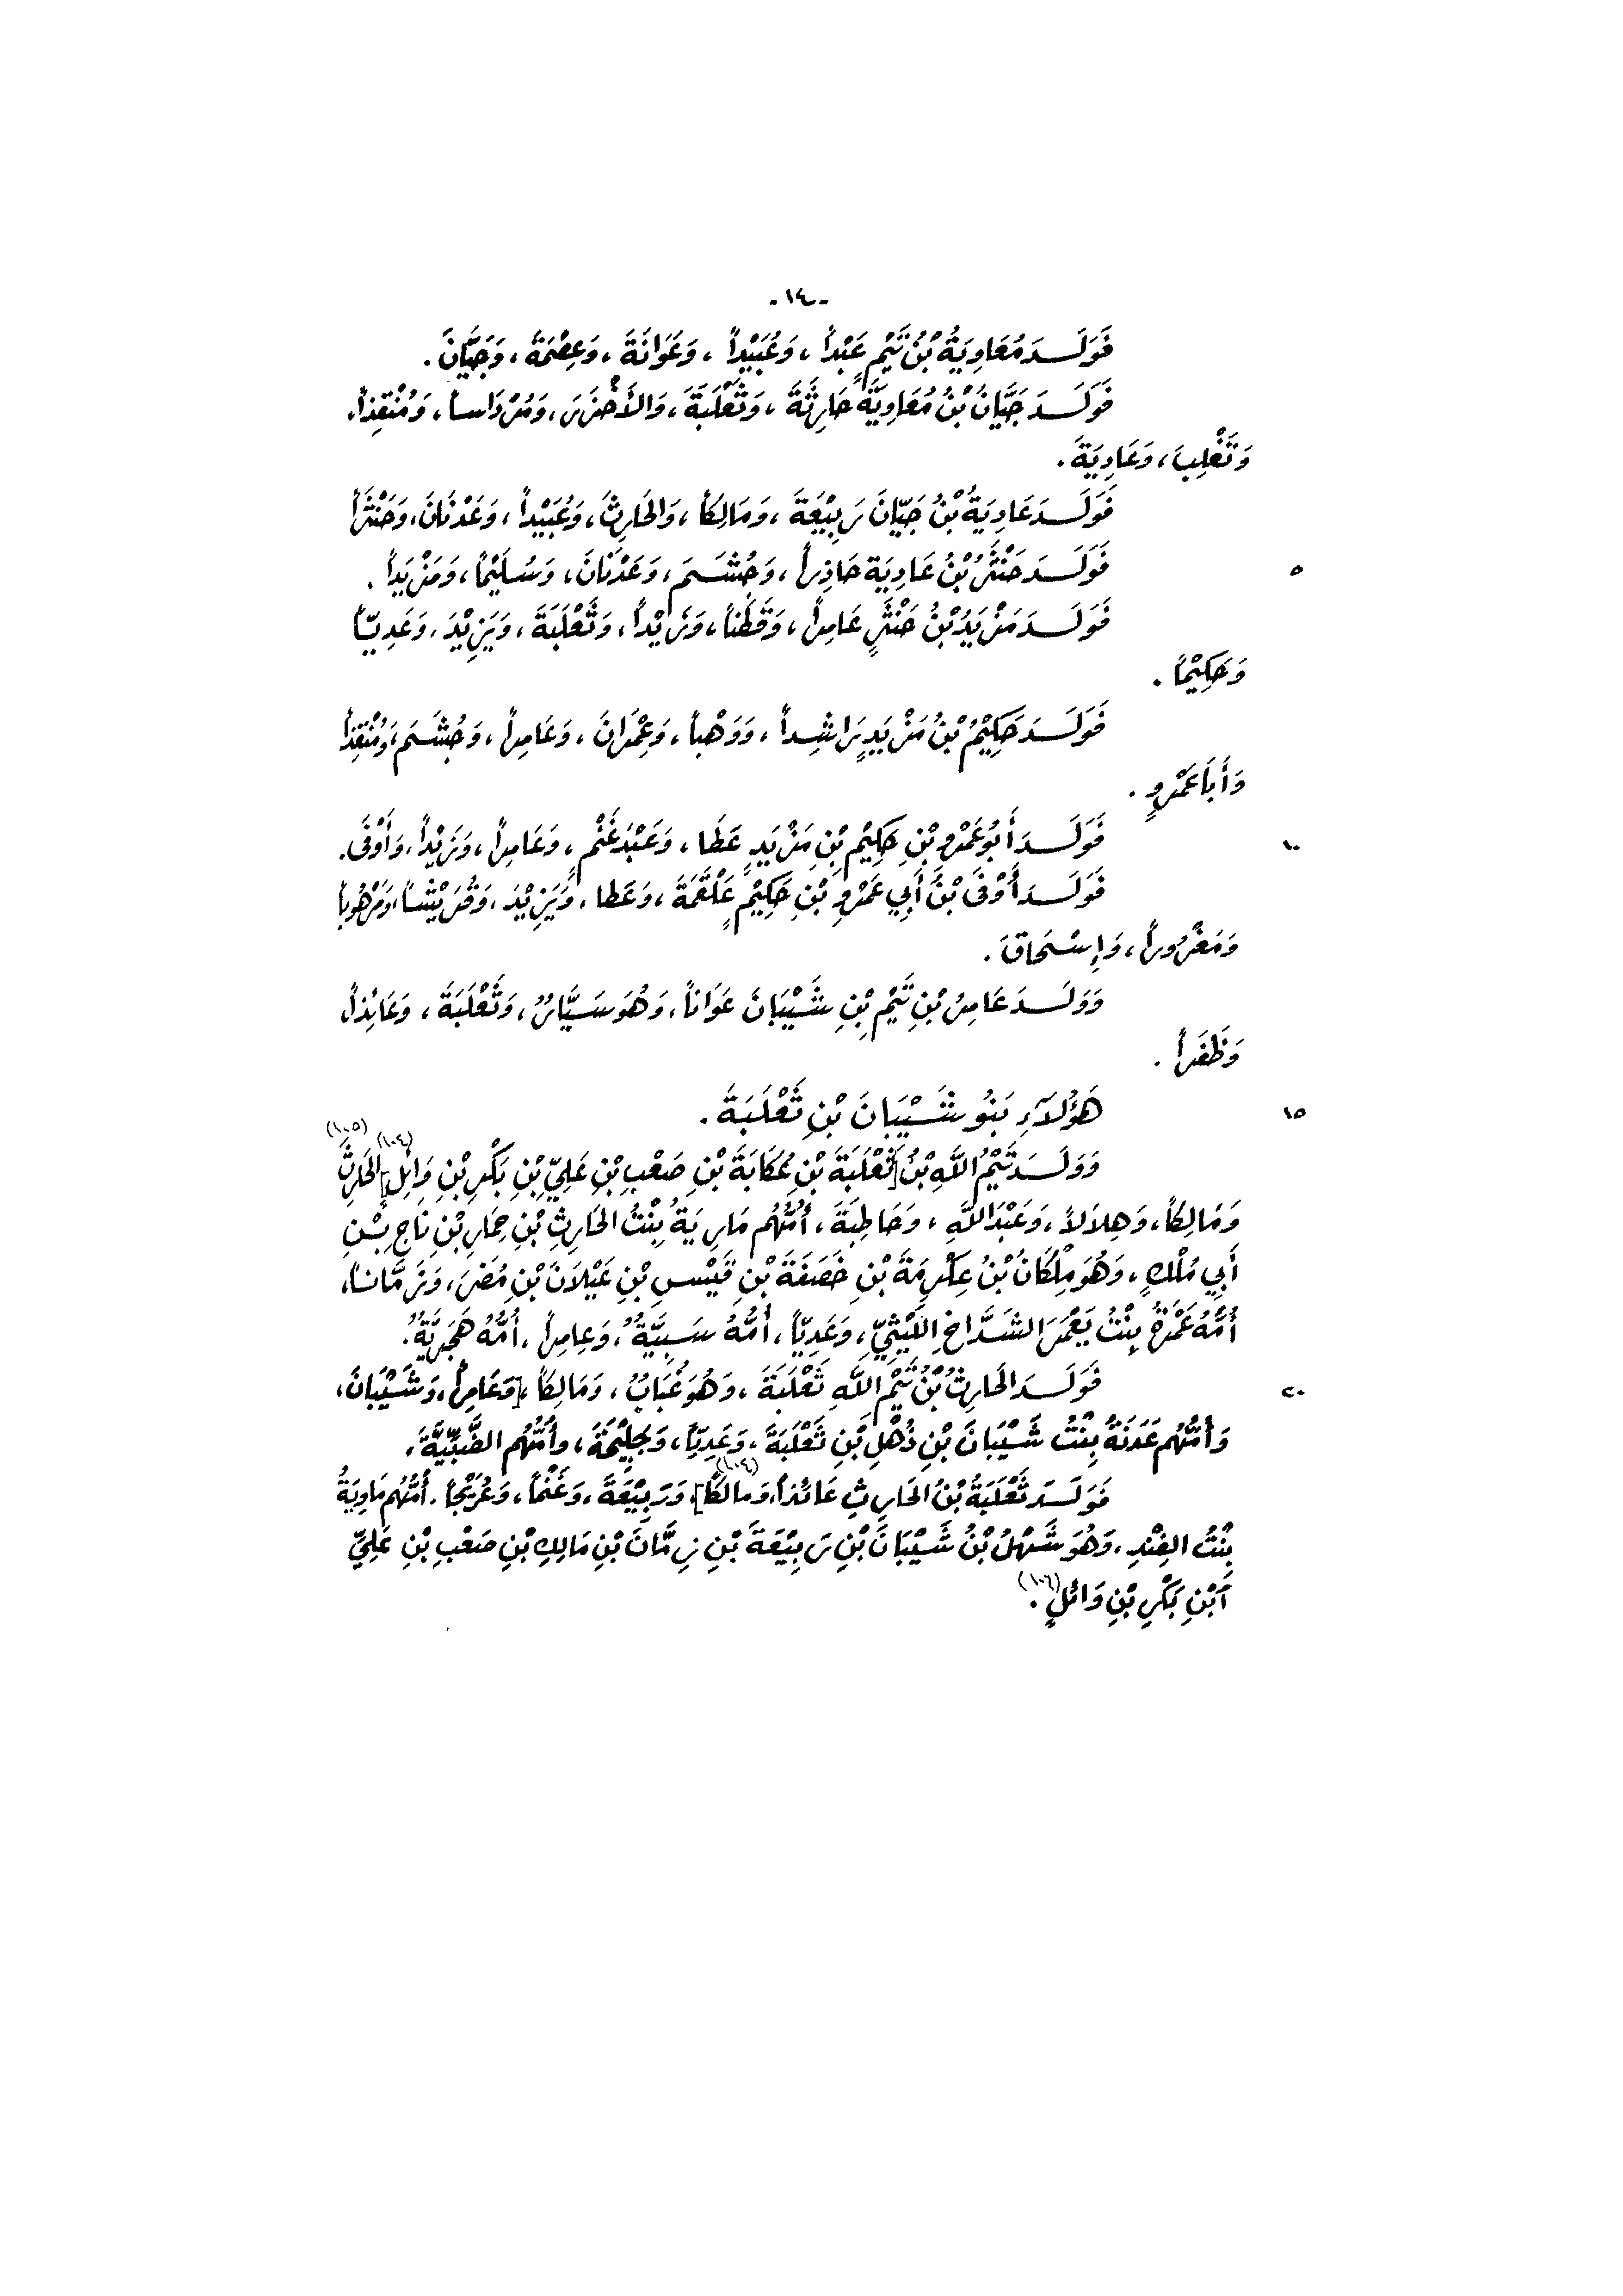 -١٤-
فَوَلَــدَ مُعَاوِيَةُ بْنُ تَيْمٍ عَبْداً ، وَعُبَيْداً ، وَعَوَانَةَ ، وَعِصْمَةَ ، وَجَيَّانَ .
فَوَلَــدَ جَيَّانُ بْنُ مُعَاوِيَةَ حَارِثَةَ ، وَثَعْلَبَةَ ، وَالأَخْزَرَ ، وَمُرْدَاساً ، وَمُنْقِذاً ،
وَتَغْلِبَ ، وَعَادِيَةَ .
فَوَلَــدَ عَادِيَةُ بْنُ جَيَّانَ رَبِيْعَةَ ، وَمَالِكاً ، وَالحَارِثَ ، وَعُبَيْداً ، وَعَدْنَانَ ، وَحَنْثَراً
٥ فَوَلَــدَ حَنْثَرُ بْنُ عَادِيَة حَاذِراً ، وَجُشَــمَ ، وَعَدْنَانَ ، وَسُلَيْماً ، وَمَزْيَداً .
فَوَلَــدَ مَزْيَدُ بْنُ حَنْثَرٍ عَامِراً ، وَقَطَناً ، وَزَيْداً ، وَثَعْلَبَةَ ، وَيَزِيْدَ ، وَعَدِيّاً
وَحَكِيْماً .
فَوَلَــدَ حَكِيْمُ بْنُ مَزْيَدٍ رَاشِــداً ، وَوَهْباً ، وَعِمْرَانَ ، وَعَامِراً ، وَجُشَــمَ ، وَمُنْقِذاً
وَأَبَا عَمْرٍو .
١٠ فَوَلَــدَ أَبُو عَمْرِو بْنِ حَكِيْمِ بْنِ مَزْيَدٍ عَطَا ، وَعَبْدَ غَنْمٍ ، وَعَامِراً ، وَزَيْداً ، وَأَوْفَى .
فَوَلَــدَ أَوْفَى بْنُ أَبِي عَمْرِو بْنِ حَكِيْمٍ عَلْقَمَةَ ، وَعَطا ، وَيَزِيْدَ ، وَقُرَيْشــاً ، وَمَرْهُوباً
وَمَغْرُوراً ، وَإِسْــحَاقَ .
وَوَلَــدَ عَامِرُ بْنِ تَيْمِ بْنِ شَــيْبَانَ عَوَاناً ، وَهُوَ سَــيَّارُ ، وَثَعْلَبَةَ ، وَعَائِذاً ،
وَظَفَراً .
١٥ هَؤُلاَءِ بَنُو شَــيْبَانَ بْنِ ثَعْلَبَةَ .
وَوَلَــدَ تَيْمُ اللَّهِ بْنُ [ثَعْلَبَةَ بْنِ عُكَابَةَ بْنِ صَعْبِ بْنِ عَلِيِّ بْنِ بَكْرِ بْنِ وَائِلٍ](١٠٤) الحَارِثَ(١٠٥)
وَمَالِكاً ، وَهِلاَلاً ، وَعَبْدَ اللَّهِ ، وَحَاطِبَةَ ، أُمُّهُم مَارِيَةُ بِنْتُ الحَارِثِ بْنِ حِمَارِ بْنِ نَاجِ بْــنِ
أَبِي مُلْكٍ ، وَهُوَ مِلْكَانُ بْنُ عِكْرِمَةَ بْنِ خَصَفَةَ بْنِ قَيْــسِ بْنِ عَيْلاَنَ بْنِ مُضَرَ ، وَزِمَّانــاً ،
أُمُّهُ عَمْرَةُ بِنْتُ يَعْمَرَ الشَّدَّاخِ اللَّيْثِيِّ ، وَعَدِيّاً ، أُمُّهُ سَــبِيَّةٌ ، وَعامِراً ، أُمُّهُ هَجَرِيَّةٌ .
٢٠ فَوَلَــدَ الحَارِثُ بْنُ تَيْمِ اللَّهِ ثَعْلَبَةَ ، وَهُوَ عُبَابٌ ، وَمَالِكاً ، [وَعَامِراً ، وَشَــيْبَانَ ،
وَأُمُّهُم عَدَنَةُ بِنْتُ شَــيْبَانَ بْنِ ذُهْلِ بْنِ ثَعْلَبَةَ ، وَعَدِيّاً ، وَجَلِيْحَةَ ، وأُمُّهُم الضُّبَيْبِيَّةُ ،
فَوَلَــدَ ثَعْلَبَةُ بْنُ الحَارِثِ عَائذاً ، وَمالكاً](١٠٤) ، وَرَبِيْعَةَ ، وَغَنْماً ، وَعُرَيْجاً . أُمُّهُم مَاوِيَةُ
بِنْتُ الفِنْدِ ، وَهُوَ شَــهْلُ بْنُ شَــيْبَانَ بْنِ رَبِيْعَةَ بْنِ زِمَّانَ بْنِ مَالِكِ بْنِ صَعْبِ بْنِ عَلِيِّ
ابْنِ بَكْرِ بْنِ وَائلٍ(١٠٦) .